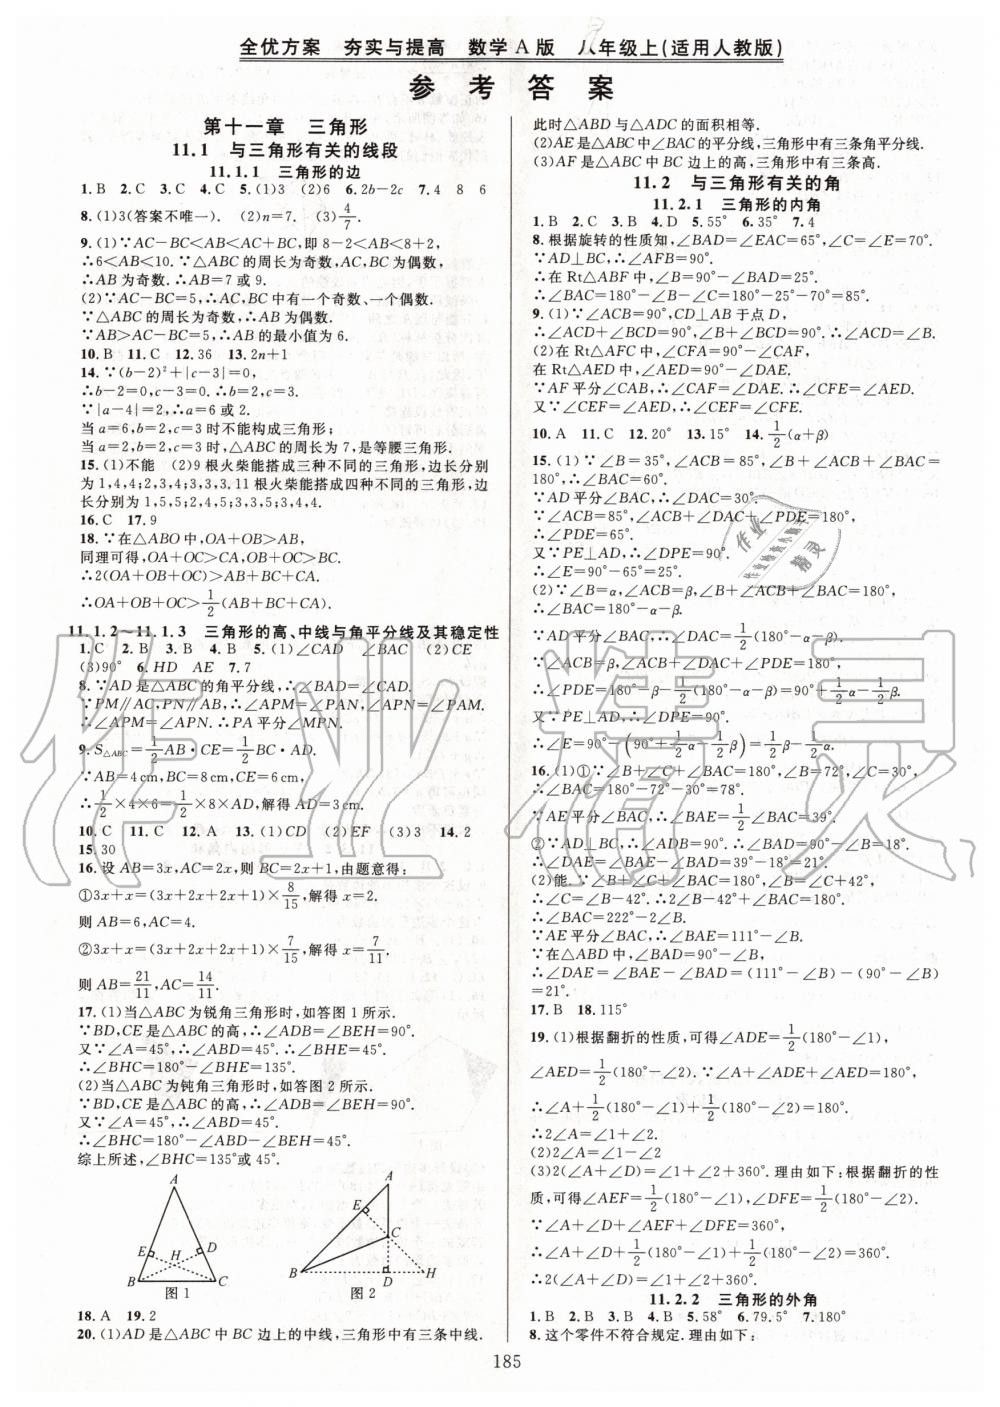 全优方案 夯实与提高 数学A版 八年级上(适用人教版)
参考答案
第十一章 三角形
11.1 与三角形有关的线段
11.1.1 三角形的边
1.B 2.C 3.C 4.C 5.(1)3 (2)6 6.2b-2c 7.4 8 6
8.(1)3(答案不唯一). (2)n=7. (3)4/7.
9.(1)∵AC-BC<AB<AC+BC,即8-2<AB<8+2,
∴6<AB<10.∵△ABC的周长为奇数,AC,BC为偶数,
∴AB为奇数.∴AB=7或9.
(2)∵AC-BC=5,∴AC,BC中有一个奇数、一个偶数.
∵△ABC的周长为奇数,∴AB为偶数.
∵AB>AC-BC=5,∴AB的最小值为6.
10.B 11.C 12.36 13.2n+1
14.∵(b-2)²+|c-3|=0,
∴b-2=0,c-3=0.∴b=2,c=3.
∵|a-4|=2,∴a=6或2.
当a=6,b=2,c=3时不能构成三角形;
当a=2,b=2,c=3时,△ABC的周长为7,是等腰三角形.
15.(1)不能 (2)9根火柴能搭成三种不同的三角形,边长分别
为1,4,4;2,3,4;3,3,3.11根火柴能搭成四种不同的三角形,
边长分别为1,5,5;2,4,5;3,3,5;3,4,4.
16.C 17.9
18.∵在△ABO中,OA+OB>AB,
同理可得,OA+OC>CA,OB+OC>BC.
∴2(OA+OB+OC)>AB+BC+CA.
∴OA+OB+OC>1/2(AB+BC+CA).
11.1.2~11.1.3 三角形的高、中线与角平分线及其稳定性
1.C 2.B 3.B 4.B 5.(1)∠CAD ∠BAC (2)CE
(3)90° 6.HD AE 7.7
8.∵AD是△ABC的角平分线,∴∠BAD=∠CAD.
∵PM∥AC,PN∥AB,∴∠APM=∠PAN,∠APN=∠PAM.
∴∠APM=∠APN.∴PA平分∠MPN.
9.S△ABC=1/2AB·CE=1/2BC·AD.
∵AB=4cm,BC=8cm,CE=6cm,
∴1/2×4×6=1/2×8×AD,解得AD=3cm.
10.C 11.C 12.A 13.(1)CD (2)EF (3)3 14.2
15.30
16.设AB=3x,AC=2x,则BC=2x+1,由题意得:
①3x+x=(3x+2x+2x+1)×8/15,解得x=2.
则AB=6,AC=4.
②3x+x=(3x+2x+2x+1)×7/15,解得x=7/11.
则AB=21/11,AC=14/11.
17.(1)当△ABC为锐角三角形时,如答图1所示.
∵BD,CE是△ABC的高,∴∠ADB=∠BEH=90°.
又∵∠A=45°,∴∠ABD=45°.∴∠BHE=45°.
∴∠BHC=180°-∠BHE=135°.
(2)当△ABC为钝角三角形时,如答图2所示.
∵BD,CE是△ABC的高,∴∠ADB=∠BEH=90°.
又∵∠A=45°,∴∠ABD=45°.
∴∠BHC=180°-∠ABD-∠BEH=45°.
综上所述,∠BHC=135°或45°.
A
E
H
D
B
C
图1
A
E
C
B
D
H
图2
18.A 19.2
20.(1)AD是△ABC中BC边上的中线,三角形中有三条中线.
此时△ABD与△ADC的面积相等.
(2)AE是△ABC中∠BAC的平分线,三角形中有三条角平分线.
(3)AF是△ABC中BC边上的高,三角形中有三条高.
11.2 与三角形有关的角
11.2.1 三角形的内角
1.B 2.C 3.B 4.D 5.55° 6.35° 7.4
8.根据旋转的性质知,∠BAD=∠EAC=65°,∠C=∠E=70°.
∵AD⊥BC,∴∠AFB=90°.
∴在Rt△ABF中,∠B=90°-∠BAD=25°.
∴∠BAC=180°-∠B-∠C=180°-25°-70°=85°.
9.(1)∵∠ACB=90°,CD⊥AB于点D,
∴∠ACD+∠BCD=90°,∠B+∠BCD=90°.∴∠ACD=∠B.
(2)在Rt△AFC中,∠CFA=90°-∠CAF,
在Rt△AED中,∠AED=90°-∠DAE.
∵AF平分∠CAB,∴∠CAF=∠DAE.∴∠CFE=∠AED.
又∵∠CEF=∠AED,∴∠CEF=∠CFE.
10.A 11.C 12.20° 13.15° 14.1/2(α+β)
15.(1)∵∠B=35°,∠ACB=85°,∠B+∠ACB+∠BAC=180°,
∴∠BAC=60°.
∵AD平分∠BAC,∴∠DAC=30°.
∵∠ACB=85°,∠ACB+∠DAC+∠PDE=180°,
∴∠PDE=65°.
又∵PE⊥AD,∴∠DPE=90°.
∴∠E=90°-65°=25°.
(2)∵∠B=α,∠ACB=β,∠B+∠ACB+∠BAC=180°,
∴∠BAC=180°-α-β.
∵AD平分∠BAC,∴∠DAC=1/2(180°-α-β).
∵∠ACB=β,∠ACB+∠DAC+∠PDE=180°,
∴∠PDE=180°-β-1/2(180°-α-β)=90°+1/2α-1/2β.
又∵PE⊥AD,∴∠DPE=90°.
∴∠E=90°-(90°+1/2α-1/2β)=1/2β-1/2α.
16.(1)①∵∠B+∠C+∠BAC=180°,∠B=72°,∠C=30°,
∴∠BAC=180°-72°-30°=78°.
∵AE平分∠BAC,∴∠BAE=1/2∠BAC=39°.
②∵AD⊥BC,∴∠ADB=90°.∴∠BAD=90°-∠B=18°.
∴∠DAE=∠BAE-∠BAD=39°-18°=21°.
(2)能.∵∠B+∠C+∠BAC=180°,∠B=∠C+42°,
∴∠C=∠B-42°.∴2∠B+∠BAC=222°.
∴∠BAC=222°-2∠B.
∵AE平分∠BAC,∴∠BAE=111°-∠B.
∵在△ABD中,∠BAD=90°-∠B,
∴∠DAE=∠BAE-∠BAD=(111°-∠B)-(90°-∠B)
=21°.
17.B 18.115°
19.(1)根据翻折的性质,可得∠ADE=1/2(180°-∠1),
∠AED=1/2(180°-∠2).∵∠A+∠ADE+∠AED=180°,
∴∠A+1/2(180°-∠1)+1/2(180°-∠2)=180°.
∴2∠A=∠1+∠2.
(2)2∠A=∠1-∠2
(3)2(∠A+∠D)=∠1+∠2+360°.理由如下:根据翻折的性
质,可得∠AEF=1/2(180°-∠1),∠DFE=1/2(180°-∠2).
∵∠A+∠D+∠AEF+∠DFE=360°,
∴∠A+∠D+1/2(180°-∠1)+1/2(180°-∠2)=360°.
∴2(∠A+∠D)=∠1+∠2+360°.
11.2.2 三角形的外角
1.B 2.B 3.B 4.B 5.58° 6.79.5° 7.180°
8.这个零件不符合规定.理由如下:
185
作业精灵